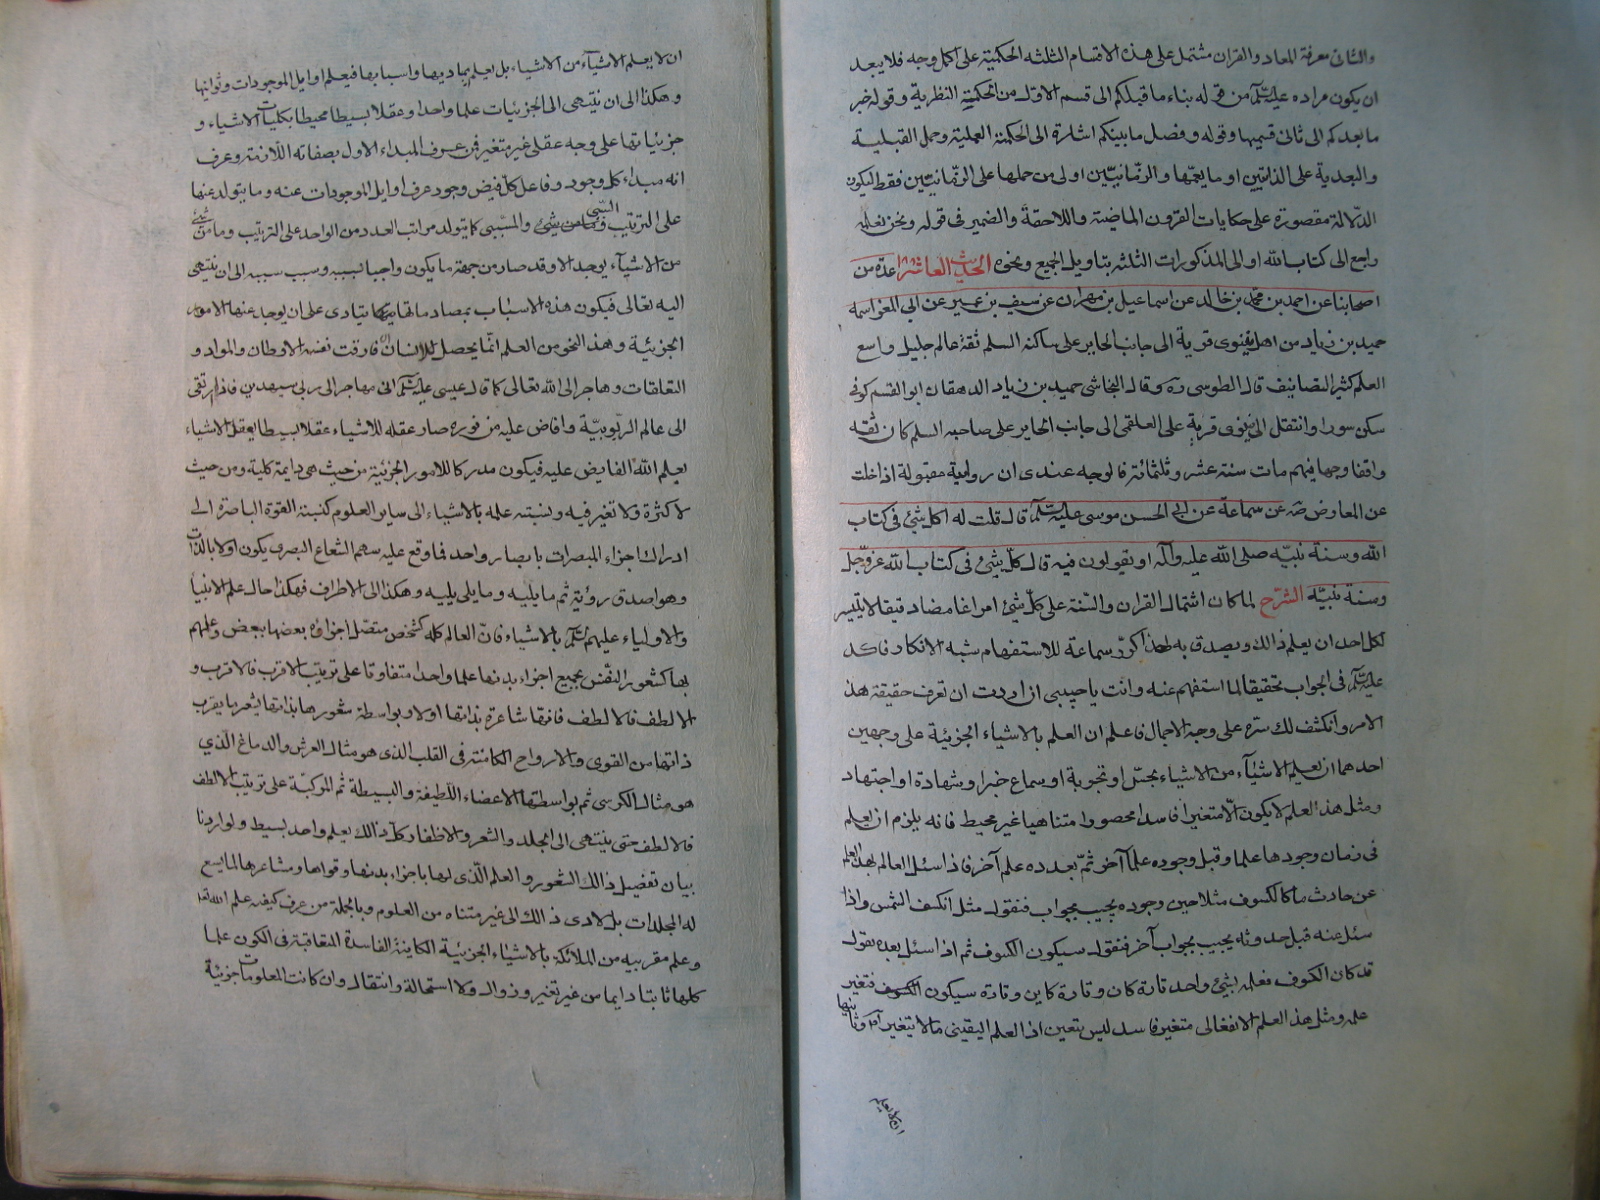 والثانى معرفة المعاد والقران مشتمل على هذه الاقسام الثلثه الحكمية على اكمل وجه فلا يبعد
ان يكون مراده عليه السلم من قوله بناء ما قبلكم الى قسم الاول من الحكمة النظرية وقوله خبر
ما بعدكم الى ثانى قسميها وقوله وفصل ما بينكم اشارة الى الحكمة العملية وحمل القبلية
والبعدية على الذاتيين او ما يعمها والزمانيين اولى من حملها على الزمانيين فقط ليكون
الدلالة مقصورة على حكايات القرون الماضية واللاحقة والضمير فى قوله ونحن نعلمه
راجع الى كتاب الله او الى المذكورات الثلثه بتاويل الجميع ونحوه الحديث العاشر عدة من
اصحابنا عن احمد بن محمد بن خالد عن اسماعيل بن مهران عن سيف بن عميرعن ابي المغرا اسمه
حميد بن زياد من اهل نينوى قرية الى جانب الحاير على ساكنه السلم ثقة عالم جليل واسع
العلم كثير التصانيف قال الطوسى ره وقال النجاشى حميد بن زياد الدهقان ابو القسم كوفى
سكن سورا وانتقل الى نينوى قرية على العلقمى الى جانب الحاير على صاحبه السلم كان ثقه
واقفا وجها فيهم مات سنة عشر وثلثمائة فالوجه عندى ان روايته مقبولة اذا خلت
عن المعارض صه عن سماعة عن ابى الحسن موسى عليه السلم قال قلت له اكل شئ فى كتاب
الله وسنة نبيه صلى الله عليه وآله او تقولون فيه قال كل شئ فى كتاب الله عز وجل
وسنة نبيه الشرح لما كان اشتمال القران والسنة على كل شئ امرا غامضا دقيقا لا يتيسر
لكل احد ان يعلم ذالك ويصدق به لهذا كرر سماعة للاستفهام شبه الانكار فاكد
عليه السلم فى الجواب تحقيقا لما استفهم عنه وانت يا حبيبى ان اردت ان تعرف حقيقة هذا
الامر وانكشف لك ستره على وجه الاجمال فاعلم ان العلم بالاشياء الجزئية على وجهين
احدهما ان يعلم الاشياء من الاشياء بحس او تجربة او سماع خبر او شهادة او اجتهاد
ومثل هذا العلم لا يكون الا متغيرا فاسدا محصورا متناهيا غير محيط فانه يلزم ان يعلم
فى زمان وجودها علما وقبل وجوده علما آخر ثم بعده علم آخر فاذا سئل العالم بهذا العلم
عن حادث ما كالكسوف مثلا حين وجوده يجيب بجواب فنقول مثل انكسف الشمس واذا
سئل عنه قبل حدوثه يجيب بجواب آخر فنقول سيكون الكسوف ثم اذا سئل بعده يقول
قد كان الكسوف فعلمه بشئ واحد تارة كان وتارة كاين وتارة سيكون الكسوف فتغير
علمه ومثل هذا العلم الانفعالى متغير فاسد ليس بتعين اذ العلم اليقينى ما لا يتغير وثانيها
ان لا يعلم
ان لا يعلم الاشياء من الاشياء بل يعلم بمباديها واسبابها فيعلم اوايل الموجودات وثوانيها
وهكذا الى ان ينتهى الى الجزئيات علما واحدا وعقلا بسيطا محيطا بكليات الاشياء و
جزئياتها على وجه عقلى غير متغير فمن عرف المبداء الاول بصفاته اللازمة وعرف
انه مبداء كل وجود وفاعل كل فيض وجود عرف اوايل الموجودات عنه وما يتولد عنها
على الترتيب السببى والمسببى كما يتولد مراتب العدد من الواحد على الترتيب وما من شئ
من الاشياء يوجد الا وقد صار من جهة ما يكون واجبا بسببه وسبب سببه الى ان ينتهى
اليه تعالى فيكون هذه الاسباب بمصادماتها يتادى على ان يوجد عنها الامور
الجزئية وهذا النحو من العلم انما يحصل للانسان اذا فارقت نفسه الاوطان والمواد و
التعلقات وهاجر الى الله تعالى كما قال عيسى عليه السلم انى مهاجر الى ربى سيهدين فاذا ارتقى
الى عالم الربوبية وافاض عليه من فوره صار عقله للاشياء عقلا بسيطا يعقل الاشياء
بعلم الله الفايض عليه فيكون مدركا للامور الجزئية من حيث هى دايمة كلية ومن حيث
لا كثرة ولا تغير فيه ونسبة علمه بالاشياء الى ساير العلوم كنسبة القوة الباصرة الى
ادراك اجزاء المبصرات بابصار واحد فما وقع عليه سهم الشعاع البصرى يكون اولا بالذات
وهو اصدق رؤية ثم ما يليه وما يلى يليه وهكذا الى الاطراف فهكذا حال علم الانبيا
والاولياء عليهم السلم بالاشياء فان العالم كله كشخص متصل اجزاؤه بعضها ببعض وعلمهم
بها كشعور النفس بجميع اجزاء بدنها علما واحدا متفاوتا على ترتيب الاقرب فالاقرب و
الالطف فالالطف فانها شاعرة بذاتها اولا وبواسطة شعورها بذاتها يشعر بما يقرب
ذاتها من القوى والارواح الكامنة فى القلب الذى هو مثال العرش والدماغ الذي
هو مثال الكرسى ثم بواسطتها الاعضاء اللطيفة والبسيطة ثم المركبة على ترتيب الالطف
فالالطف حتى ينتهى الى الجلد والشعر والاظفار كل ذالك بعلم واحد بسيط ولو اردنا
بيان تفصيل ذالك الشعور والعلم الذى لها باجزاء بدنها وقواها ومشاعرها لما يسع
له المجلدات بل لادى ذالك الى غير متناه من العلوم وبالجملة من عرف كيفية علم الله تعا
وعلم مقربيه من الملائكة بالاشياء الجزئية الكاينة الفاسدة المتعاقبة فى الكون علما
كلها ثابتا دايما من غير تغير وزوال ولا استحالة وانتقال وان كانت المعلومات جزئية